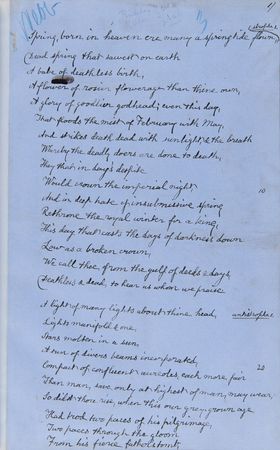 strophe 1
Spring, born in heaven ere many a springtide flown,
Dead spring that sawest on earth
A babe of deathless birth,
A flower of rosier flowerage than thine own,
A glory of goodlier godhead; even this day,
That floods the mist of February with May,
And strikes death dead with sunlight, & the breath
Whereby the deadly doers are done to death,
They that in day's despite
Would crown the imperial night, 10
And in deep hate of insubmissive spring
Rethrone the royal winter for a king,
This day that casts the days of darkness down
Low as a broken crown,
We call thee from the gulf of deeds & days,
Deathless & dead, to hear us whom we praise.
A light of many lights about thine head, antistrophe 1
Lights manifold & one,
Stars molten in a sun,
A sun of divers beams incorporated, 20
Compact of confluent aureoles, each more fair
Than man, save only at highest of man, may wear,
So didst thou rise, when this our grey-grown age
Had trod two paces of his pilgrimage,
Two paces through the gloom
From his fierce father's tomb,